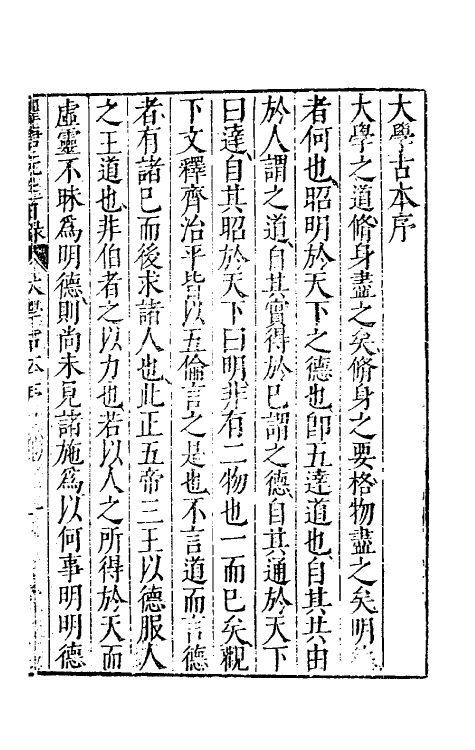 大學古本序
大學之道脩身盡之矣脩身之要格物盡之矣明
者何也昭明於天下之德也即五達道也自其共由
於人謂之道自其實得於巳謂之德自其通於天下
曰達自其昭於天下曰明非有二物也一而巳矣觀
下文釋齊治平皆以五倫言之是也不言道而言德
者有諸巳而後求諸人也此正五帝三王以德服人
之王道也非伯者之以力也若以人之所得於天而
虛靈不昧為明德則尚未見諸施為以何事明明德
大學古本序